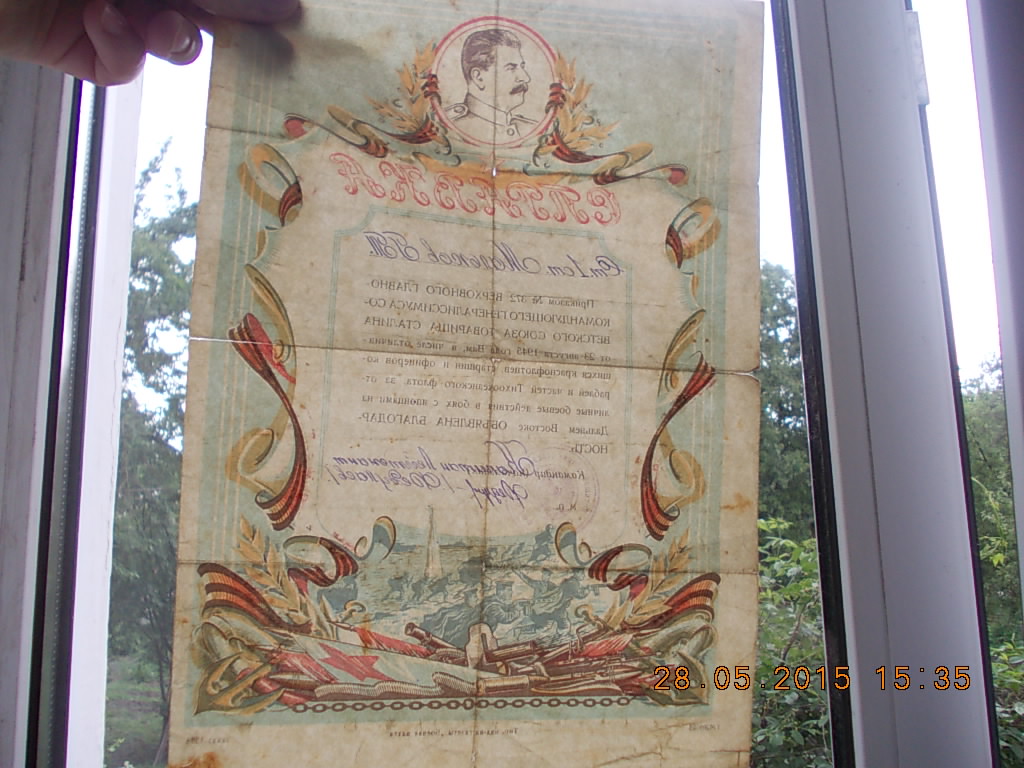 СПРАВКА
Ст. 1 ст.
Приказом № 372 ВЕРХОВНОГО ГЛАВНО-
КОМАНДУЮЩЕГО ГЕНЕРАЛИССИМУСА СО-
ВЕТСКОГО СОЮЗА ТОВАРИЩА СТАЛИНА
от 23 августа 1945 года Вам, в числе отличив-
шихся краснофлотцев старшин и офицеров ко-
раблей и частей Тихоокеанского флота за от-
личные боевые действия в боях с японцами на
Дальнем Востоке ОБЪЯВЛЕНА БЛАГОДАР-
НОСТЬ
Командир Капитан Лейтенант
М. П.
28.05.2015 15:35